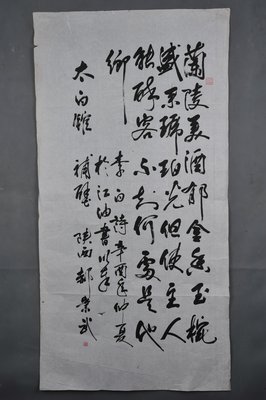 蘭陵美酒郁金香玉椀
盛来琥珀光但使主人
能醉客不知何處是他
鄉
李白詩辛酉年仲夏
於江油書以奉
太白館
補壁 陕西郝崇武